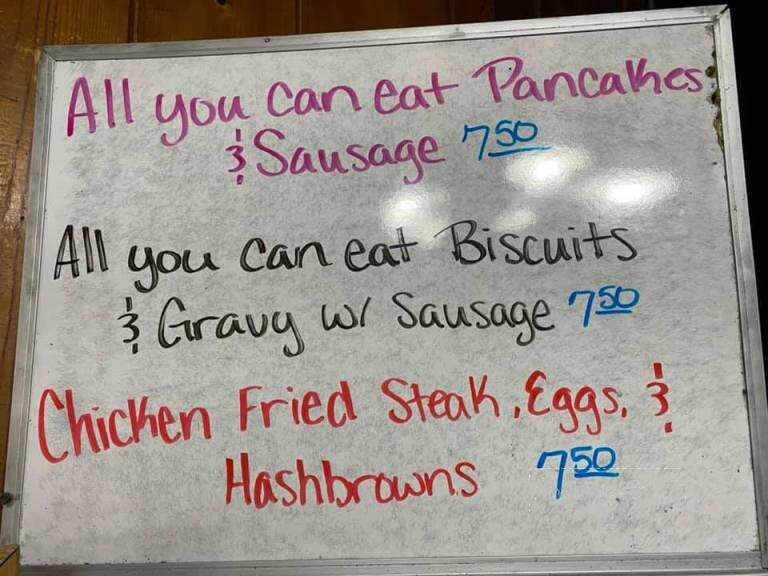 All you can eat Pancakes
& Sausage 750
All you can eat Biscuits
& Gravy w/ Sausage 750
Chicken Fried Steak, Eggs, &
Hashbrowns 750